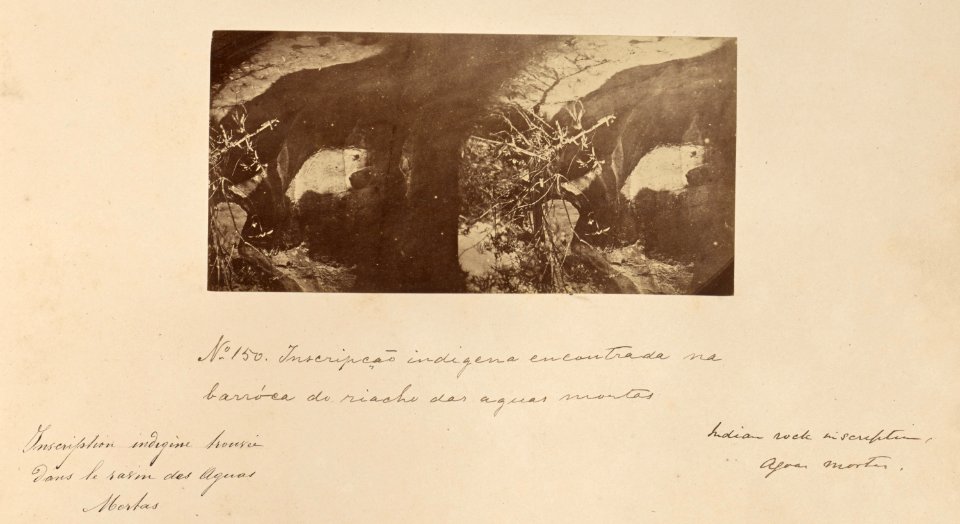 Nº 150. Inscripção indigena encontrada na
barróca do riacho das aguas mortas
Inscription indigine trouvée
Dans le ravin des Aguas
Mortas
Indian rock inscription,
Aguas mortas.